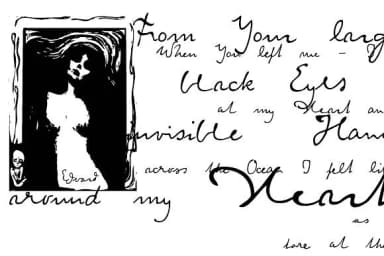 From Your larg
When You left me – I
black Eyes
at my Heart an
invisible Han
across the Ocean I felt li
around my Heart
as
tore at th
Edvard